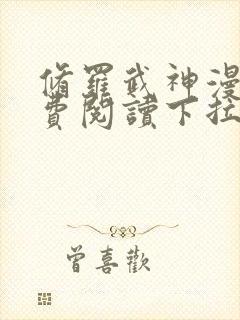 脩羅武神漫
費閱讀下拉
曾喜歡